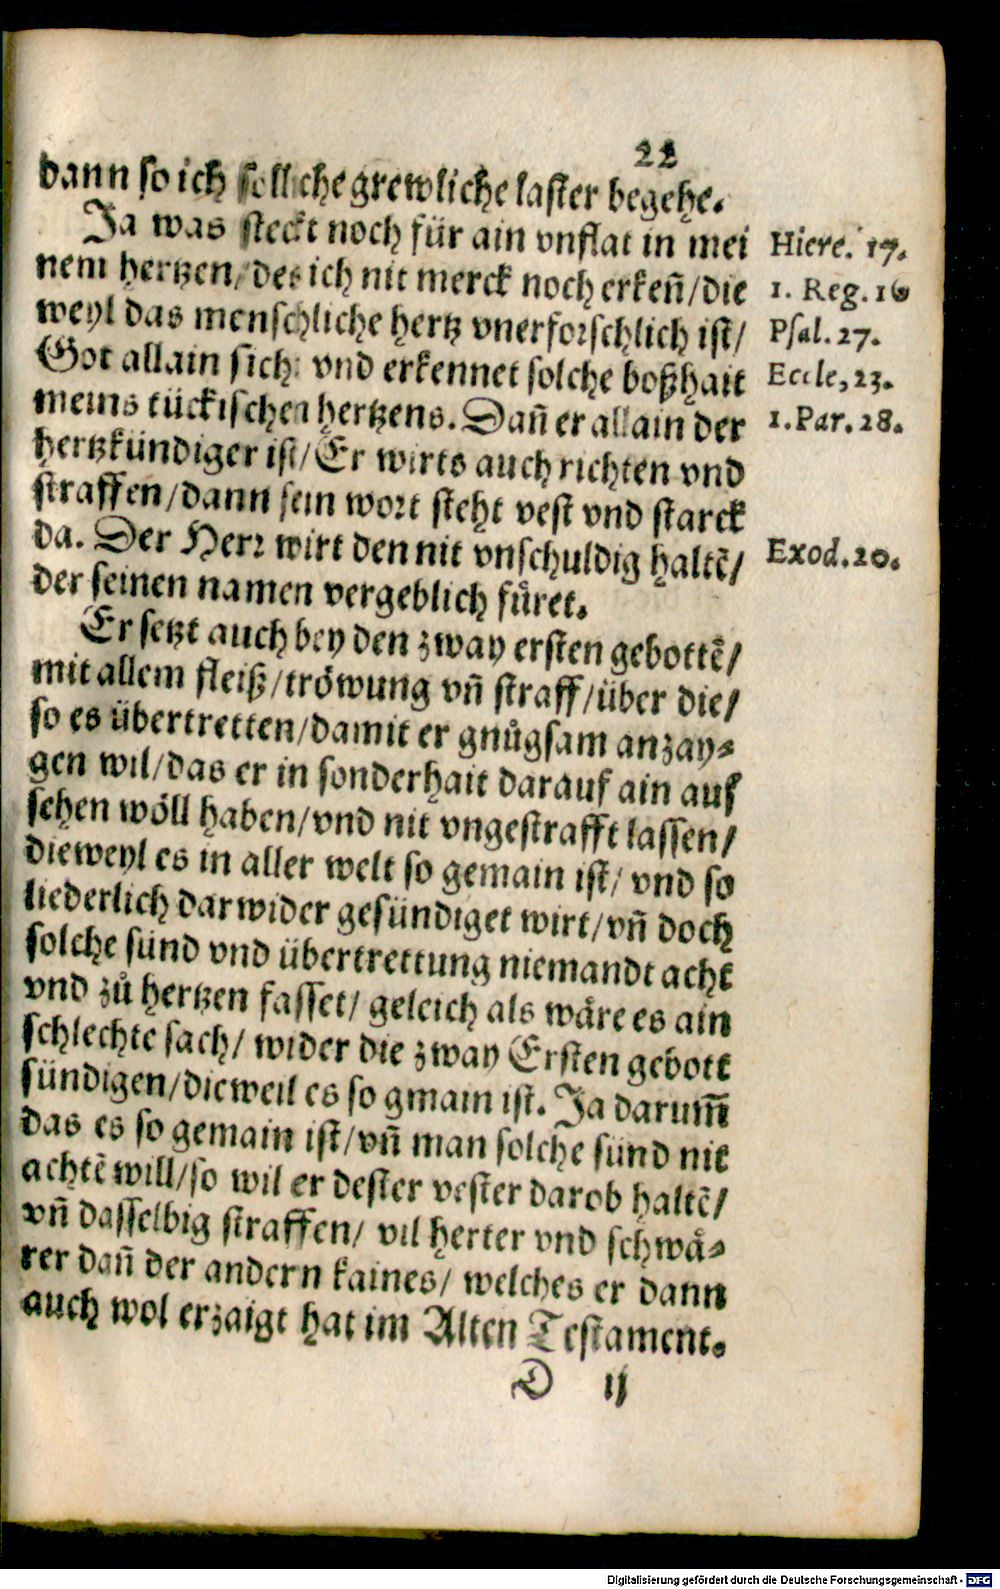 22
dann so ich solliche grewliche laster begehe.
Ja was steckt noch für ain vnflat in mei
nem hertzen/ des ich nit merck noch erkeñ/die
weyl das menschliche hertz vnerforschlich ist/
Got allain sicht vnd erkennet solche boßhait
meins tückischen hertzens. Dañ er allain der
hertzkündiger ist/ Er wirts auch richten vnd
straffen/dann sein wort steht vest vnd starck
da. Der Herr wirt den nit vnschuldig haltẽ/
der seinen namen vergeblich fůret.
Er setzt auch bey den zway ersten gebottẽ/
mit allem fleiß/tröwung vñ straff/über die/
so es übertretten/damit er gnůgsam anzay-
gen wil/das er in sonderhait darauf ain auf
sehen wöll haben/vnd nit vngestrafft lassen/
dieweyl es in aller welt so gemain ist/ vnd so
liederlich darwider gesündiget wirt/vñ doch
solche sünd vnd übertrettung niemandt acht
vnd zů hertzen fasset/ geleich als wåre es ain
schlechte sach/ wider die zway Ersten gebott
sündigen/dieweil es so gmain ist. Ja darum̃
das es so gemain ist/vñ man solche sünd nit
achtẽ will/so wil er dester vester darob haltẽ/
vñ dasselbig straffen/ vil herter vnd schwå-
rer dañ der andern kaines/ welches er dann
auch wol erzaigt hat im Alten Testament.
D ij
Hiere. 17.
1. Reg. 16
Psal. 27.
Eccle, 23.
1. Par. 28.
Exod. 20.
Digitalisierung gefördert durch die Deutsche Forschungsgemeinschaft - DFG